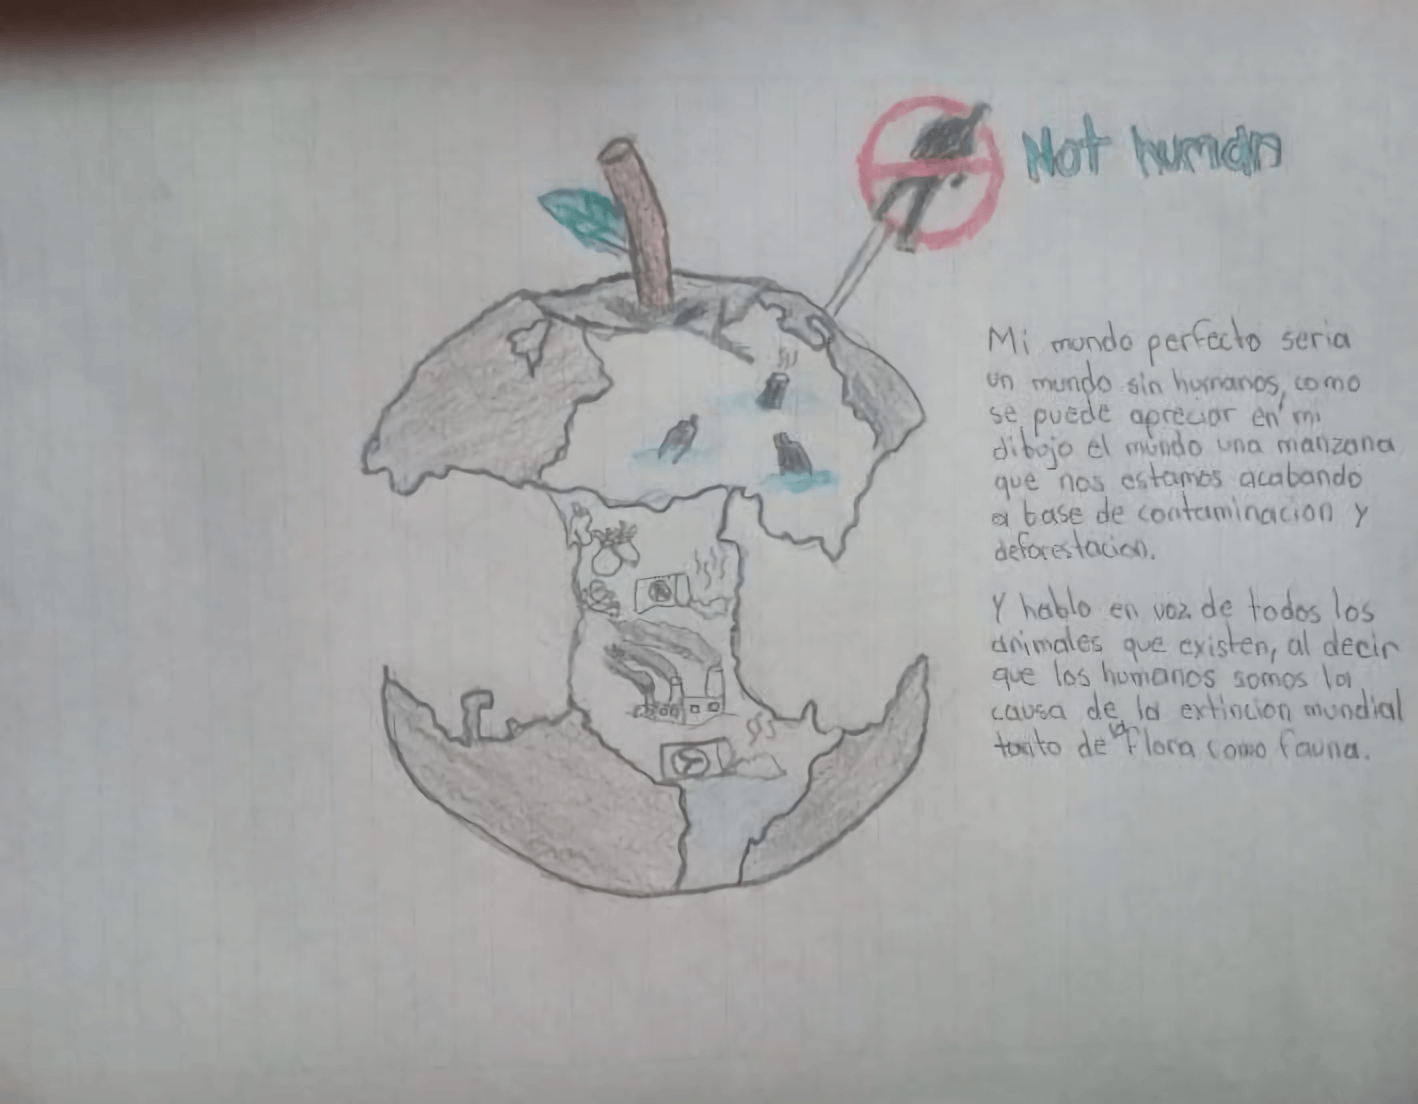 Not human
Mi mundo perfecto seria
un mundo sin humanos, como
se puede apreciar en mi
dibujo el mundo una manzana
que nos estamos acabando
a base de contaminacion y
deforestacion.
Y hablo en voz de todos los
animales que existen, al decir
que los humanos somos la
causa de la extincion mundial
tanto de la flora como fauna.